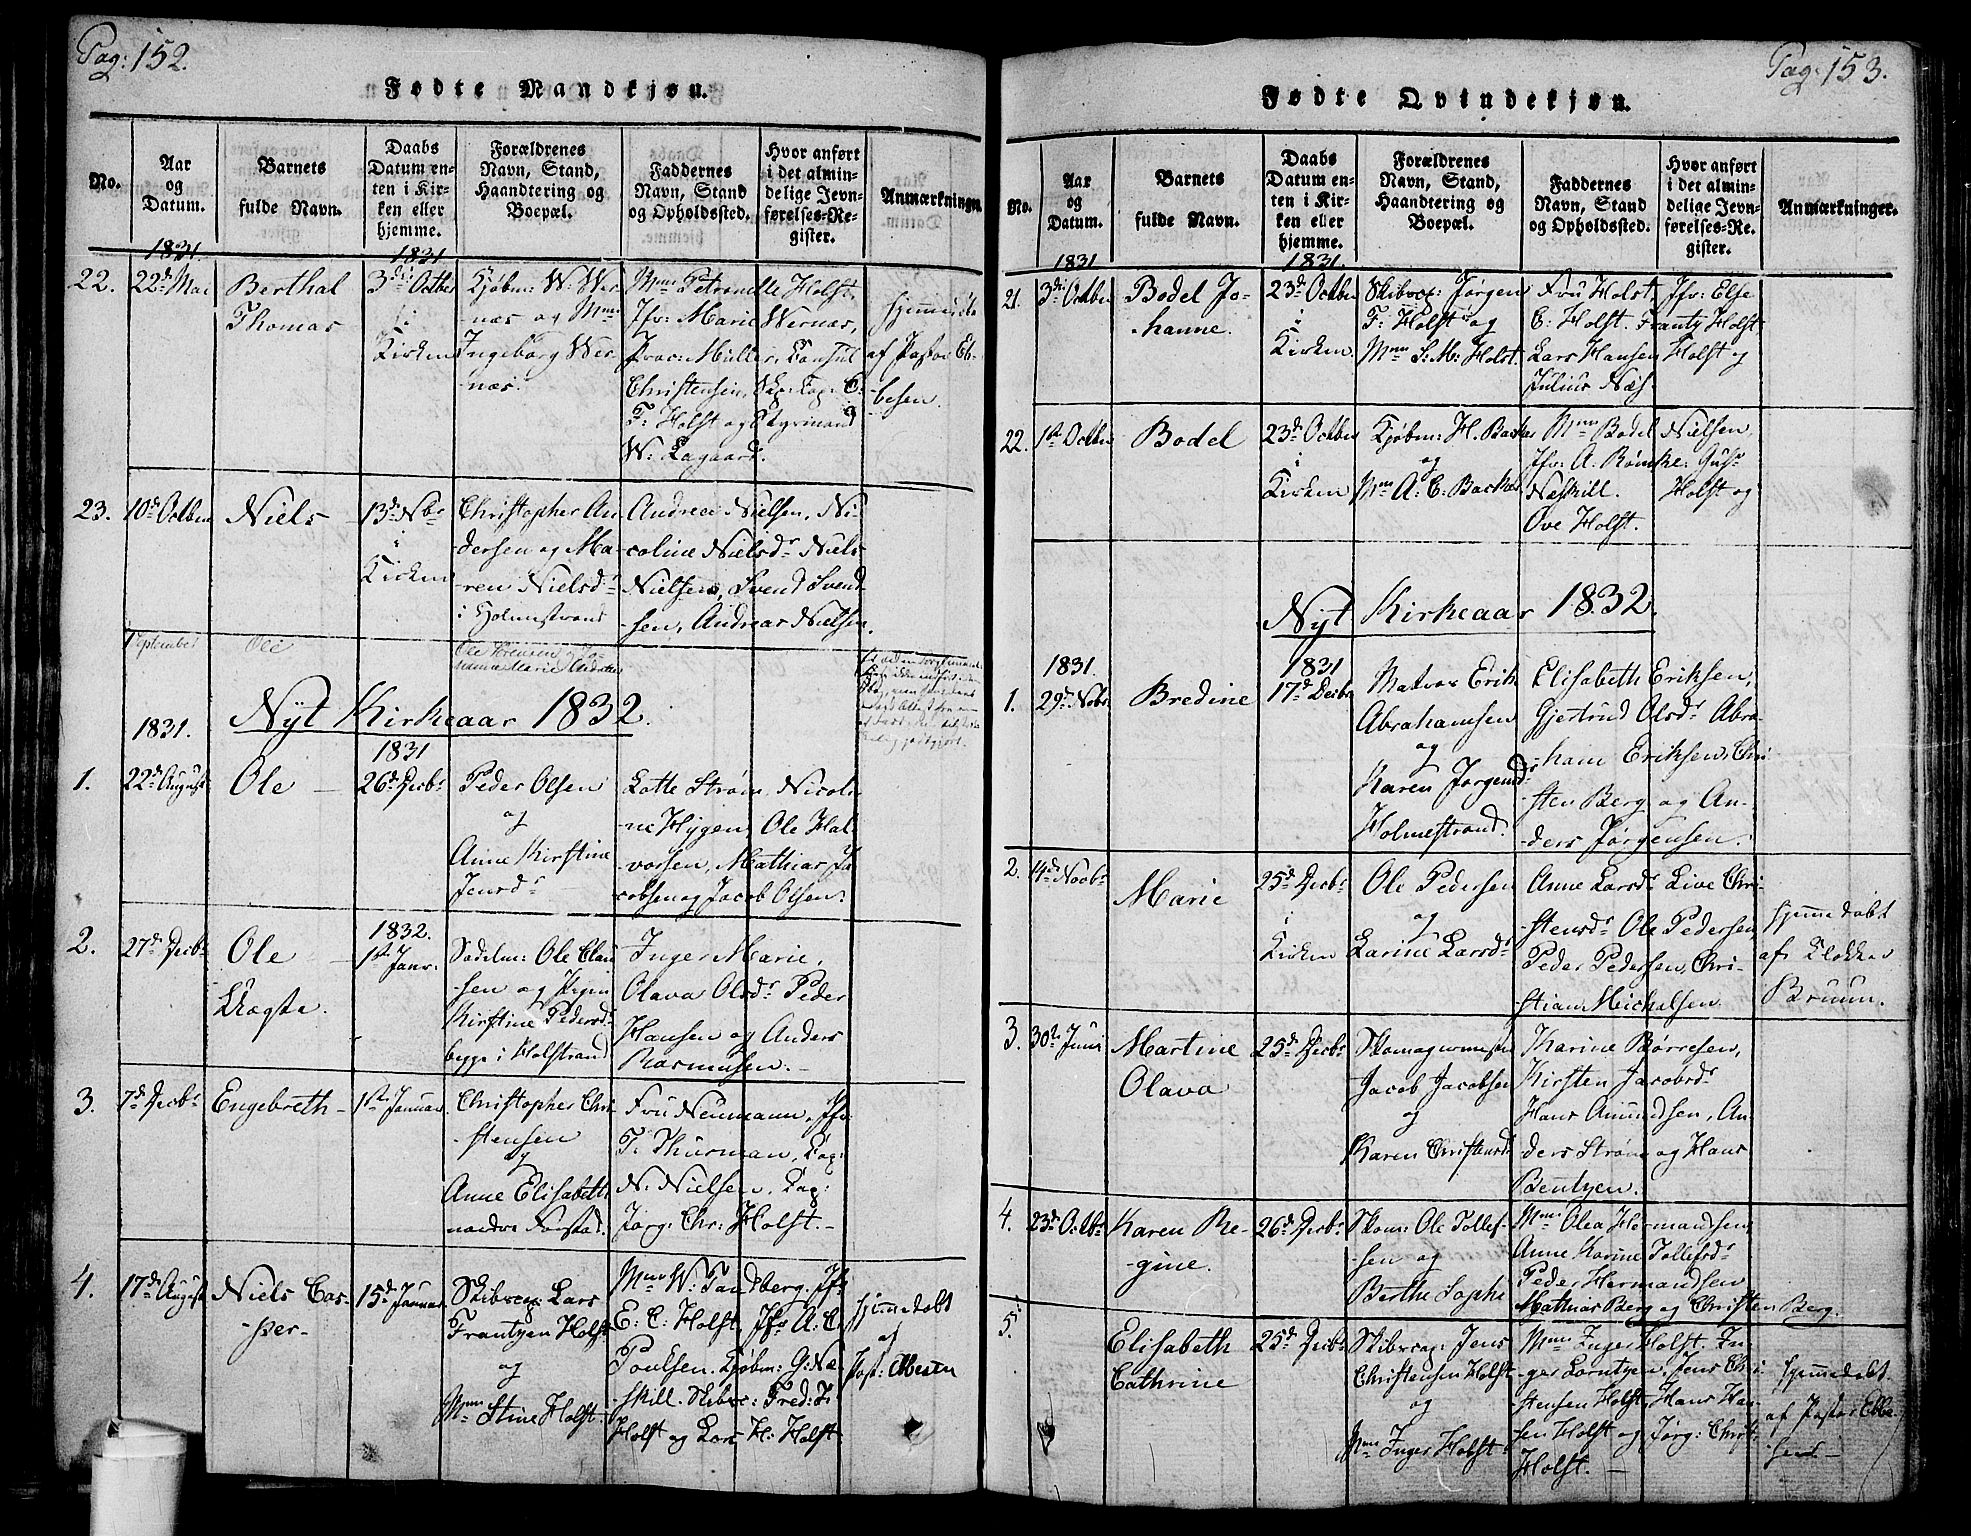 Pag: 152.
Fødte Mandkjøn.
No.
Aar
og
Datum.
Barnets
fulde Navn.
Daabs
Datum en-
ten i Kir-
ken eller
hjemme.
Forældrenes
Navn, Stand,
Haandtering og
Boepæl.
Faddernes
Navn, Stand
og Opholdssted.
Hvor anført
i det almin-
delige Jevn-
førelses-Re-
gister.
Anmærkninger.
1831.
1831
22.
22d Mai
Berthal
Thomas
3die Octber
i
Kirken
Kjøbm: W: Wer
-næs og Mme
Ingeborg Wer
-næs.
Mme Petronelle Holst,
Jfr: Marie Wernæs,
Proc: Müller, Consul
Christensen, Skp: Cap: C.
F: Holst og Styrmand
W: Lagaard.
Hjemmedøbt
af Pastor Eb-
besen.
23.
10de Octber
Niels
13de Nbr
i
Kirken
Christopher An
dersen og Ma-
ren Nielsdr
i Holmestrand
Andrea Nielsen, Ni-
coline Nielsdr Niels
Nielsen, Svend Svend
-sen, Andreas Nielsen.
September
Ole
Ole Sørensen og Jo-
hanna Marie
Nyt Kirkeaar 1832.
1831.
1831
1.
22de August
Ole
26de Decbr
Peder Olsen
og
Anne Kirstine
Jensdr
Lotte Strøm, Nicoli
-ne Hygen, Ole Hal
vorsen, Mathias Ja
cobsen og Jacob Olsen.
1832.
2.
27de Decbr
Ole
Aagste.
1ste Janr.
Sadelm: Ole Clau
-sen og Pigen
Kirstine Pedersdr
begge i Holstrand
Inger Marie,
Olava Olsdr Peder
Hansen og Anders
Rasmusen.
3.
7de Decbr
Engebreth
1ste Januar
Christopher Chri
-stensen
og
Anne Elisabeth
Fru Neumann, Jfr
T: Thurman, Cap:
N: Nielsen, Cap:
Jørg: Chr: Holst.
4.
17de August
Niels Cas-
-per-
15de Januar
Skibscap: Lars
Frantzen Holst
og
Mme Stine Holst.
Mme W: Sandberg. Jfr
E: C: Holst, Jfr A: C:
Poulsen. Kjøbm: G: Næ-
-skill. Skibsc: Fred: F:
Holst og Lars H: Holst
Hjemmedøbt
af
Past: Ebbesen
Pag: 153.
Fødte Qvindekjøn.
No.
Aar
og
Datum.
Barnets
fulde Navn.
Daabs
Datum en-
ten i Kir-
ken eller
hjemme.
Forældrenes
Navn, Stand,
Haandtering og
Boepæl.
Faddernes
Navn, Stand
og Opholdssted.
Hvor anført
i det almin-
delige Jevn-
førelses-Re-
gister.
Anmærkninger.
1831
1831.
21.
3die Octber
Bodel Jo-
-hanne.
23de Octber
i
Kirken
Skibscap: Jørgen
F: Holst og
Mme S: M: Holst.
Fru Holst, Jfr: Else
C: Holst. Frantz Holst
Lars Hansen Holst og
Julius Næs.
22.
1ste Octber
Bodel
23de Octber
i
Kirken
Kjøbm: H. Backe
og
Mme A: C: Backe
Mme Bodel Nielsen,
Jfr: A. Rømke: Gus:
Næskill. Holst og
Ove Holst.
Nyt Kirkeaar 1832.
1831.
1831
1.
29de Nobr
Bredine
17de Decbr
Matros Erik
Abrahamsen
og
Karen Jørgensdr
Holmestrand.
Elisabeth Eriksen,
Gjertrud Olsdr Abra-
-ham Eriksen, Chri
-sten Berg og An-
-ders Jørgensen.
2.
4de Novbr
Marie
25de Decbr
i
Kirken
Ole Pedersen
og
Larine Larsdr
Anne Larsdr Live Chri-
-stensdr Ole Pedersen
Peder Pedersen, Chri-
-stian Michelsen.
Hjemmedøbt
af Klokker
Bruun.
3.
30te Juni
Martine
Olava
25de Decbr
Skomagermester
Jacob Jacobsen
og
Karen Christensdr
Karine Børresen,
Kirsten Jacobsdr
Hans Amundsen, An
ders Strøm og Hans
Bentzen.
4.
23de Octbr
Karen Re-
-gine.
26de Decbr
Skom: Ole Tollef-
-sen og
Berthe Sophe
Mme Olea Hermandsen,
Anne Karine Tollefsdr
Peder Hermandsen
Mathias Berg og Christen Berg.
5.
Elisabeth
Cathrine
25de Decbr
Skibscap: Jens
Christensen Holst
og
Mme Inger Holst
Mme Inger Holst. In-
-ger Lorntzen, Jens Chri
stensen Holst, Hans Han
-sen Holst og Jørg: Christ:
Holst.
Hjemmedøbt
af Pastor Ebbe-
-sen